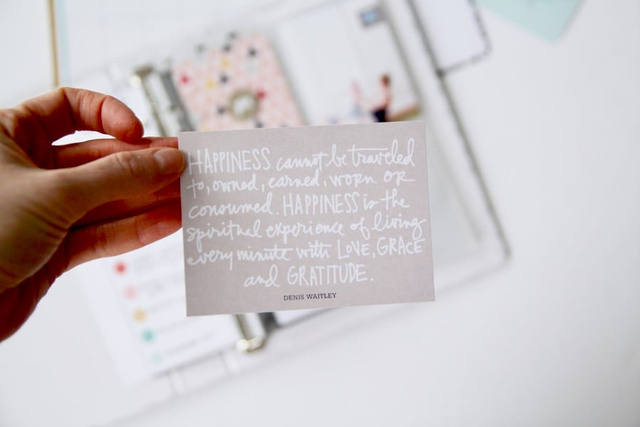 HAPPINESS cannot be traveled
to, owned, earned, worn OR
consumed. HAPPINESS is the
spiritual experience of living
every minute with LOVE, GRACE
and GRATITUDE.
DENIS WAITLEY